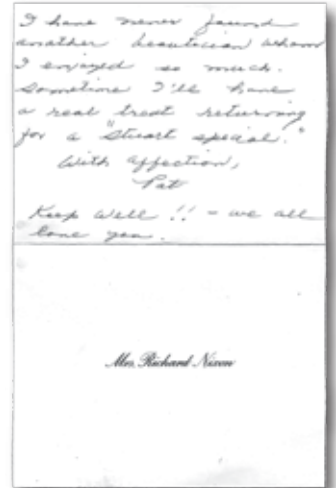 I have never found
another beautician whom
I enjoyed so much.
Sometime I'll have
a real treat returning
for a "Stuart special."
With affection,
Pat
Keep well!! - we all
love you.
Mrs. Richard Nixon